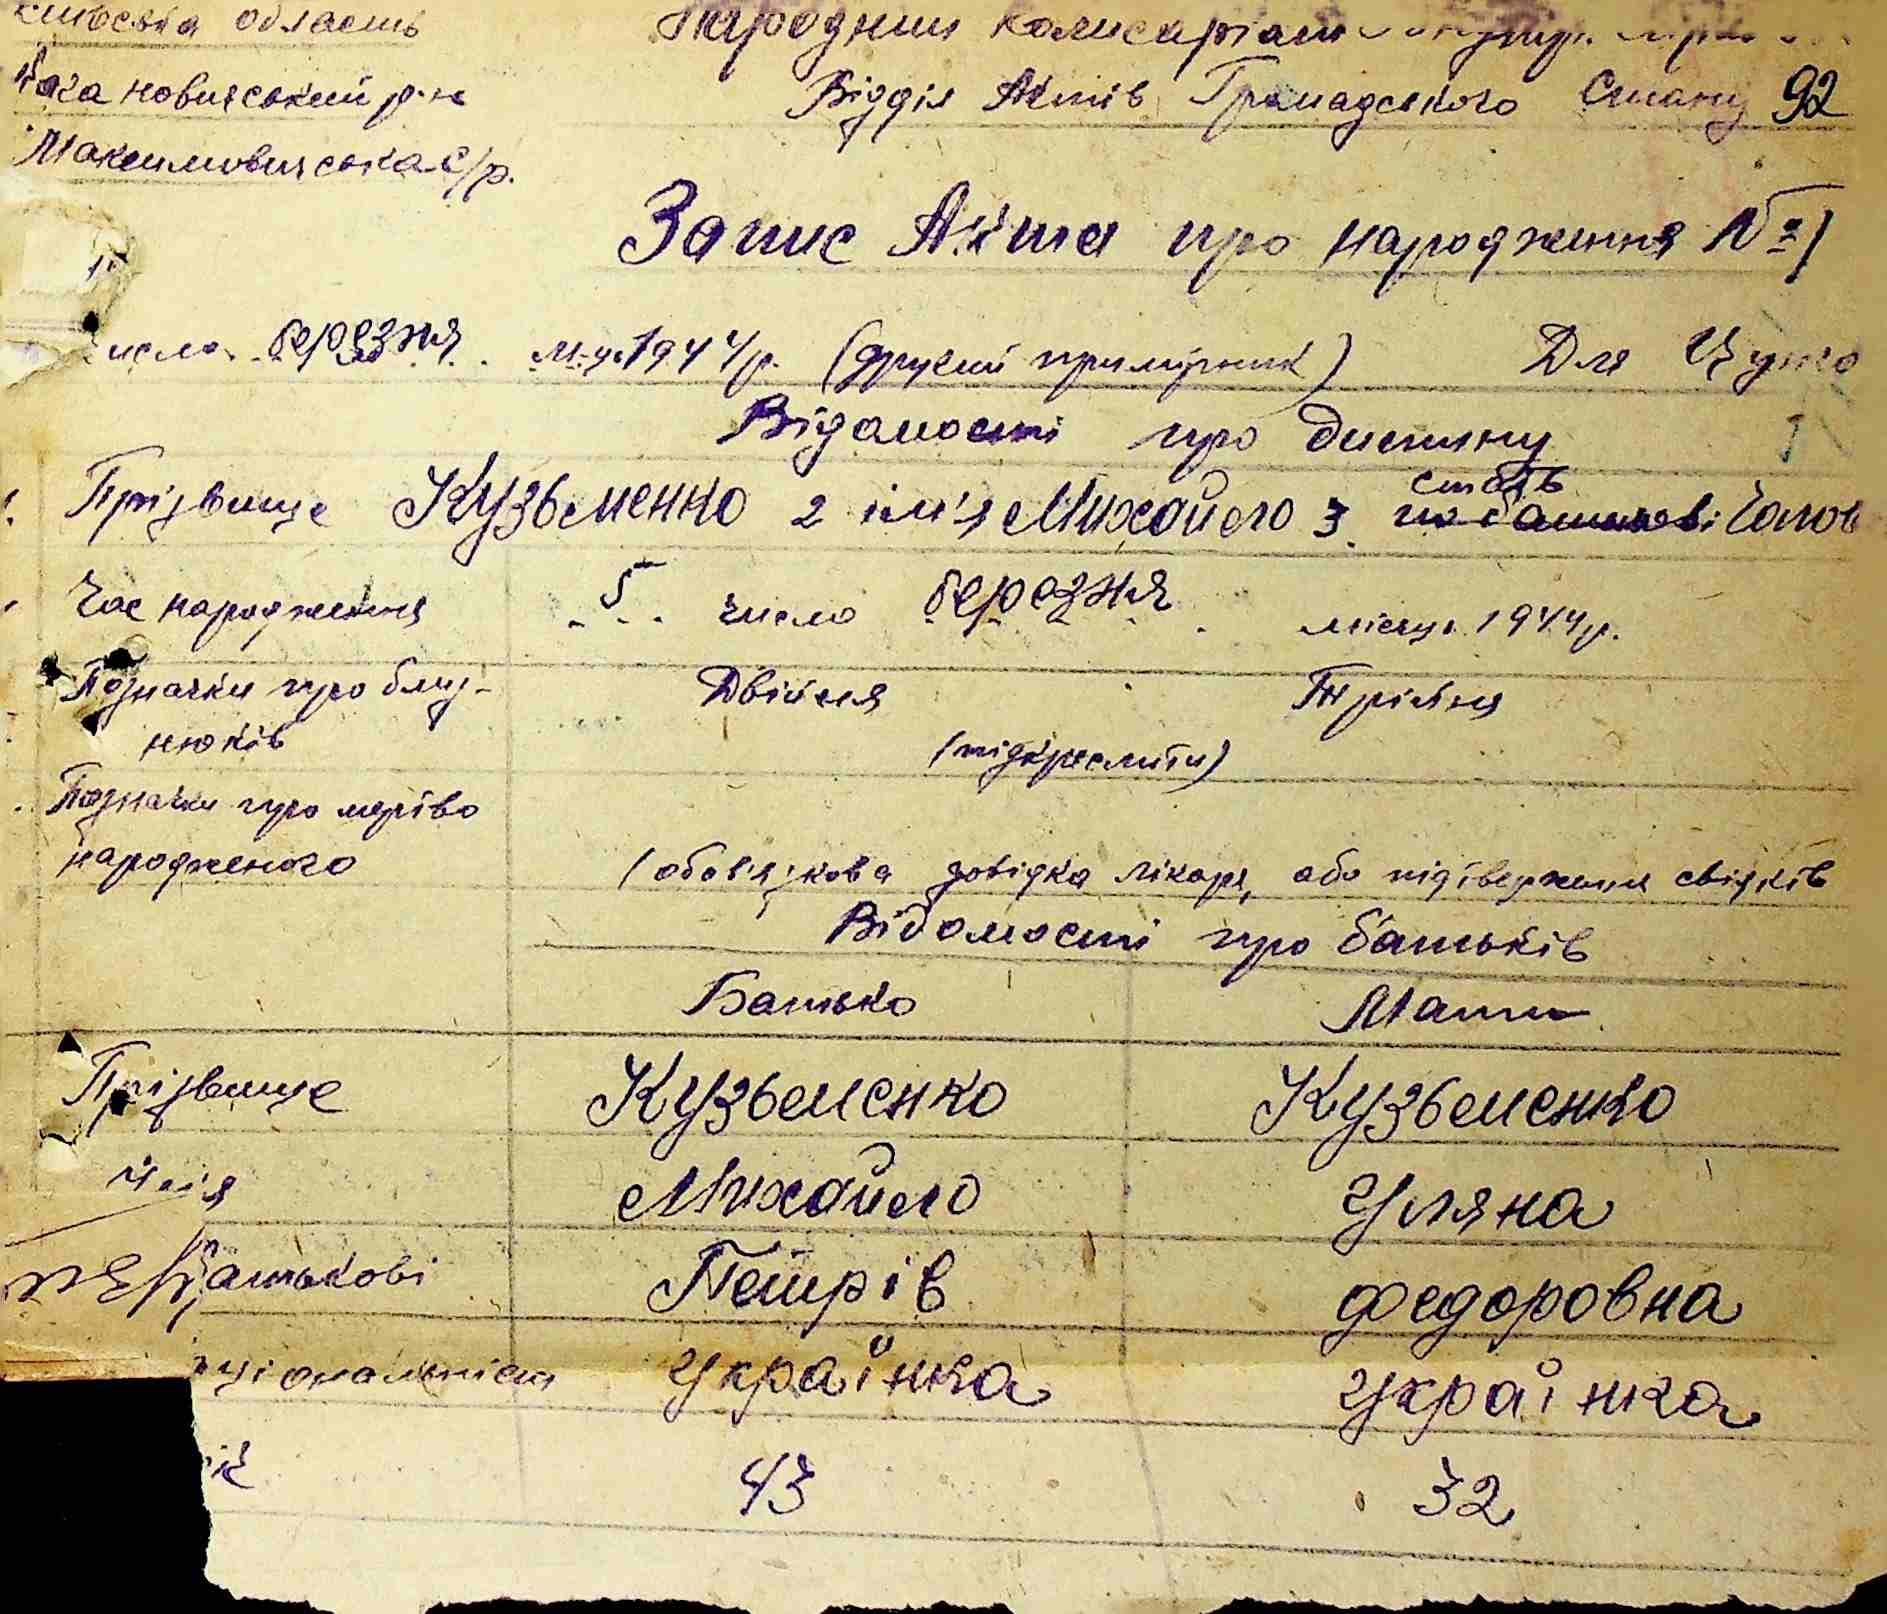 область Народний Комісаріат
новицський р-н Відділ Актів Громадського Стану 92
Максимовицська с/р.
Запис Акта про народження № 1
числа березня м-ця 1944 р. (другий примірник) Для
Відомості про дитину
Прізвище Кузьменко 2 ім'я Михайло 3. стать по батькові Чолов
Час народження 5 число березня місяця 1944 р.
Позначки про близ- Двійня Трійня
нюків (підкреслити)
Позначки про мертво
народженого (обов'язкова довідка лікаря, або підтвердження свідків
Відомості про батьків
Батько Мати
Прізвище Кузьменко Кузьменко
Имя Михайло Уляна
батькові Петрів Федоровна
ціональніст Українка Українка
ік 43 32